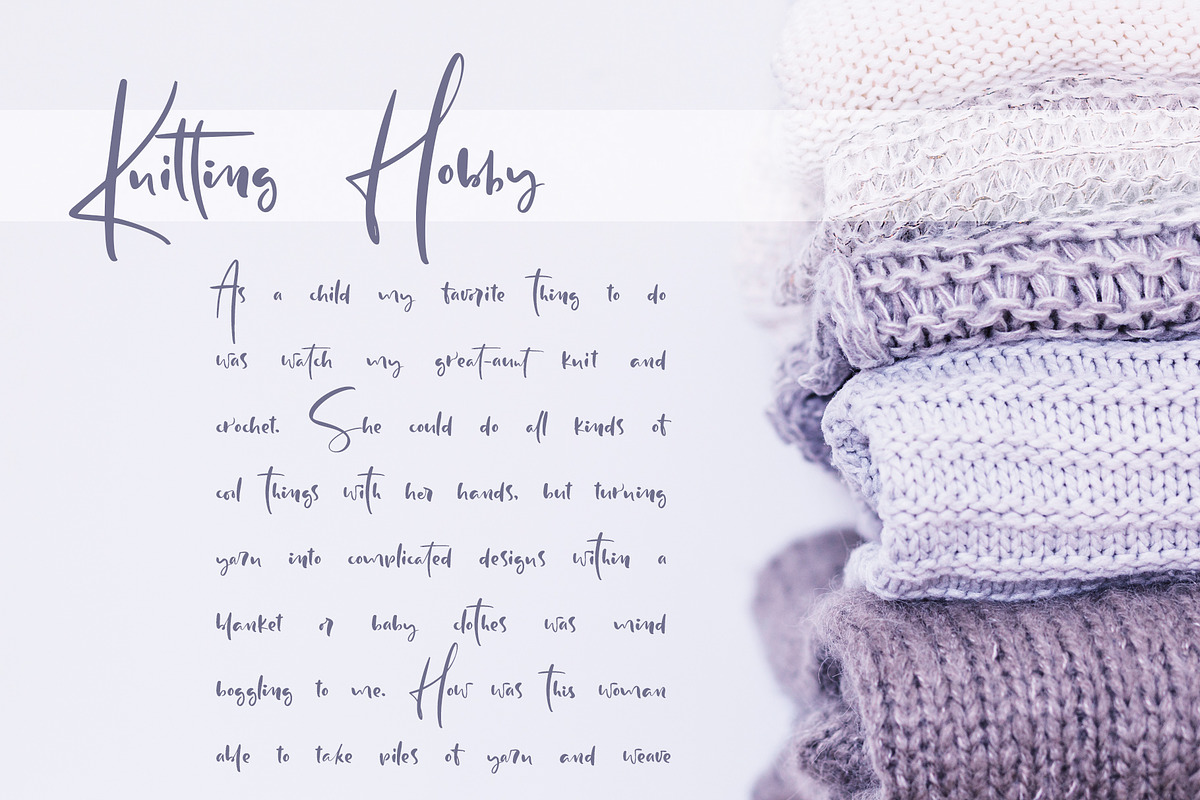 Knitting Hobby
As a child my favorite thing to do
was watch my great-aunt knit and
crochet. She could do all kinds of
cool things with her hands, but turning
yarn into complicated designs within a
blanket or baby clothes was mind
boggling to me. How was this woman
able to take piles of yarn and weave